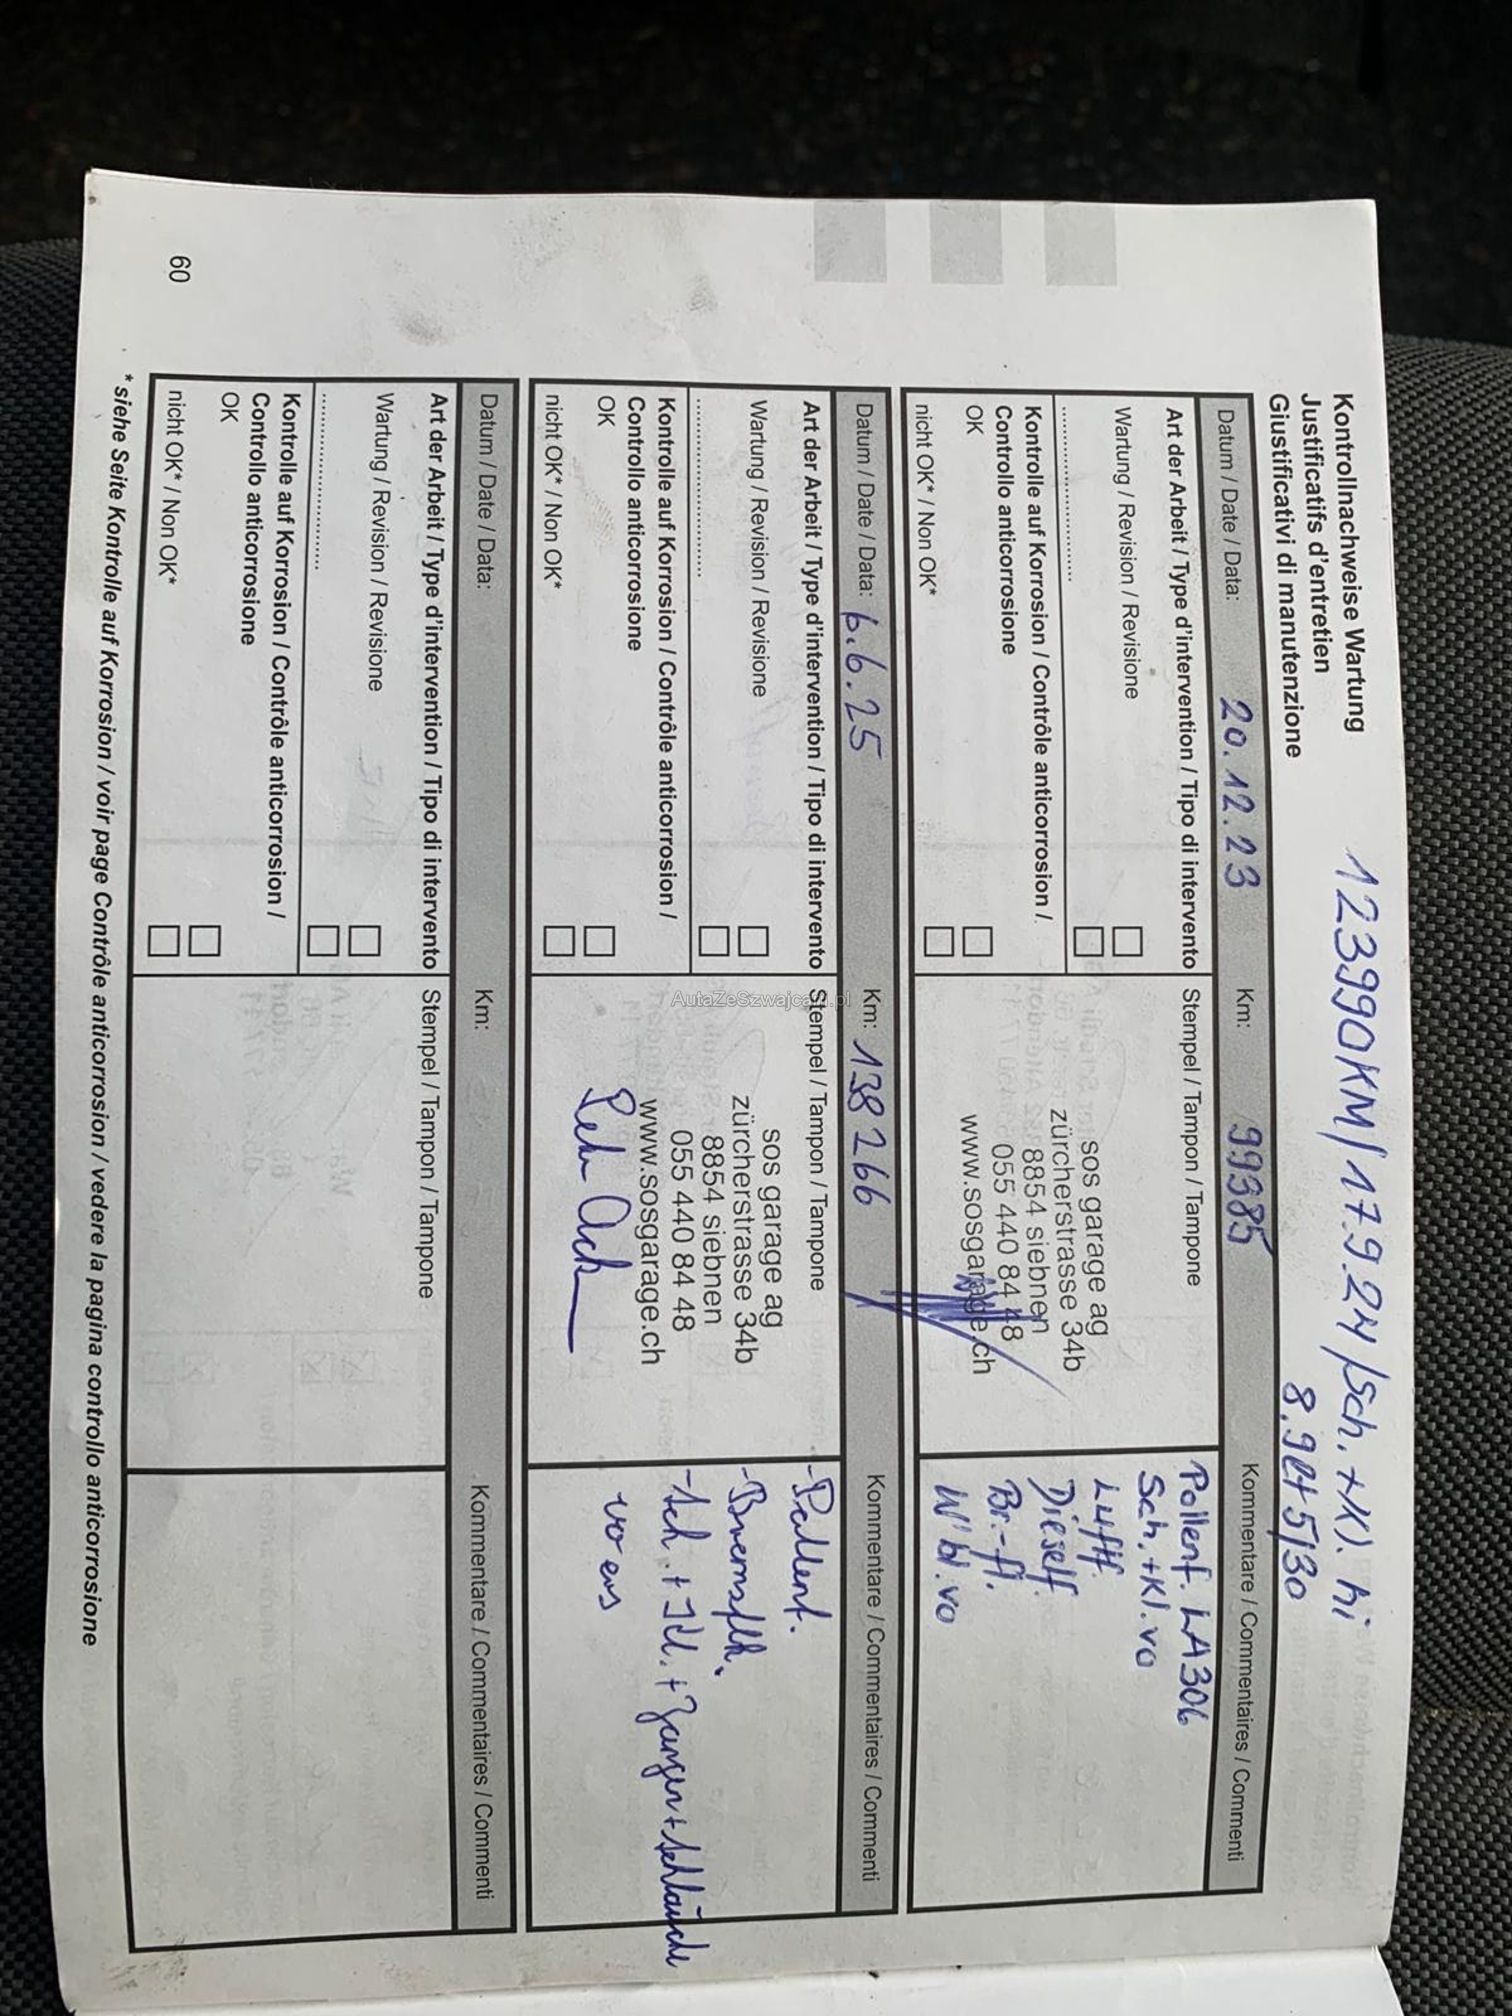 Kontrollnachweise Wartung
Justificatifs d'entretien
Giustificativi di manutenzione
123990KM/17.9.24/Sch.+Kl. hi
8.9lt 5/30
Datum / Date / Data: 20.12.23 Km: 99385 Kommentare / Commentaires / Commenti
Art der Arbeit / Type d'intervention / Tipo di intervento
Wartung / Revision / Revisione
Kontrolle auf Korrosion / Contrôle anticorrosion /
Controllo anticorrosione
OK
nicht OK* / Non OK*
Stempel / Tampon / Tampone
sos garage ag
zürcherstrasse 34b
8854 siebnen
055 440 84 48
www.sosgarage.ch
Pollenf. LA306
Sch.+Kl.vo
Luftf.
Dieself.
Br.-fl.
W'bl.vo
Datum / Date / Data: 6.6.25 Km: 138266 Kommentare / Commentaires / Commenti
Art der Arbeit / Type d'intervention / Tipo di intervento
Wartung / Revision / Revisione
Kontrolle auf Korrosion / Contrôle anticorrosion /
Controllo anticorrosione
OK
nicht OK* / Non OK*
Stempel / Tampon / Tampone
sos garage ag
zürcherstrasse 34b
8854 siebnen
055 440 84 48
www.sosgarage.ch
-Pollenf.
-Bremsflk.
-Sch.+Kl.+Zangen+Schläuche
vo ers
Datum / Date / Data: Km: Kommentare / Commentaires / Commenti
Art der Arbeit / Type d'intervention / Tipo di intervento
Wartung / Revision / Revisione
Kontrolle auf Korrosion / Contrôle anticorrosion /
Controllo anticorrosione
OK
nicht OK* / Non OK*
Stempel / Tampon / Tampone
* siehe Seite Kontrolle auf Korrosion / voir page Contrôle anticorrosion / vedere la pagina controllo anticorrosione
60
AutaZeSzwajcarii.pl